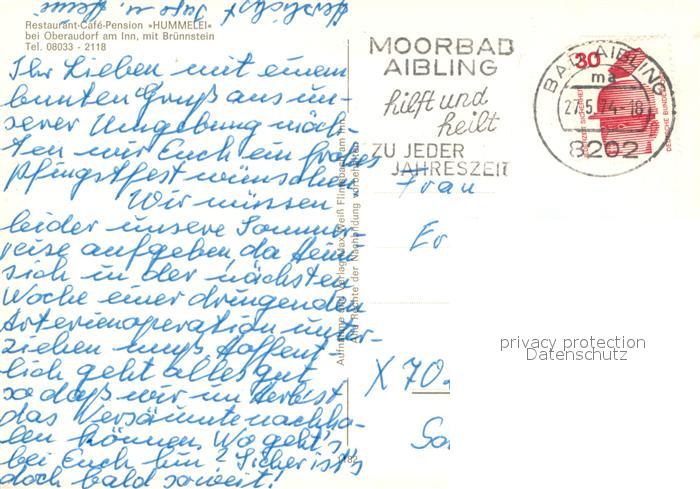 Herzlichst Eure u. Heine
Restaurant-Café-Pension »HUMMELEI«
bei Oberaudorf am Inn, mit Brünnstein
Tel. 08033 - 2118
Ihr Lieben mit einem
bunten Gruß aus un-
serer Umgebung möch-
ten wir Euch ein frohes
Pfingstfest wünschen.
Wir müssen
leider unsere Sommer-
reise aufgeben, da Heine
sich in der nächsten
Woche einer dringenden
Arterienoperation unter-
ziehen muß. Hoffent-
lich geht alles gut
so daß wir im Herbst
das Versäumte nachho-
len können. Wo geht's
bei Euch hin? Sicher ist's
doch bald soweit!
Aufnahme und Verlag Max Weiß Flintsbach am Inn
Alle Rechte der Nachbildung vorbehalten
1192
MOORBAD
AIBLING
hilft und
heilt
ZU JEDER
JAHRESZEIT
30
JEDERZEIT SICHERHEIT
DEUTSCHE BUNDES
BAD AIBLING
ma
27.5.74-18
8202
Frau
Er
X 70
So
privacy protection
Datenschutz